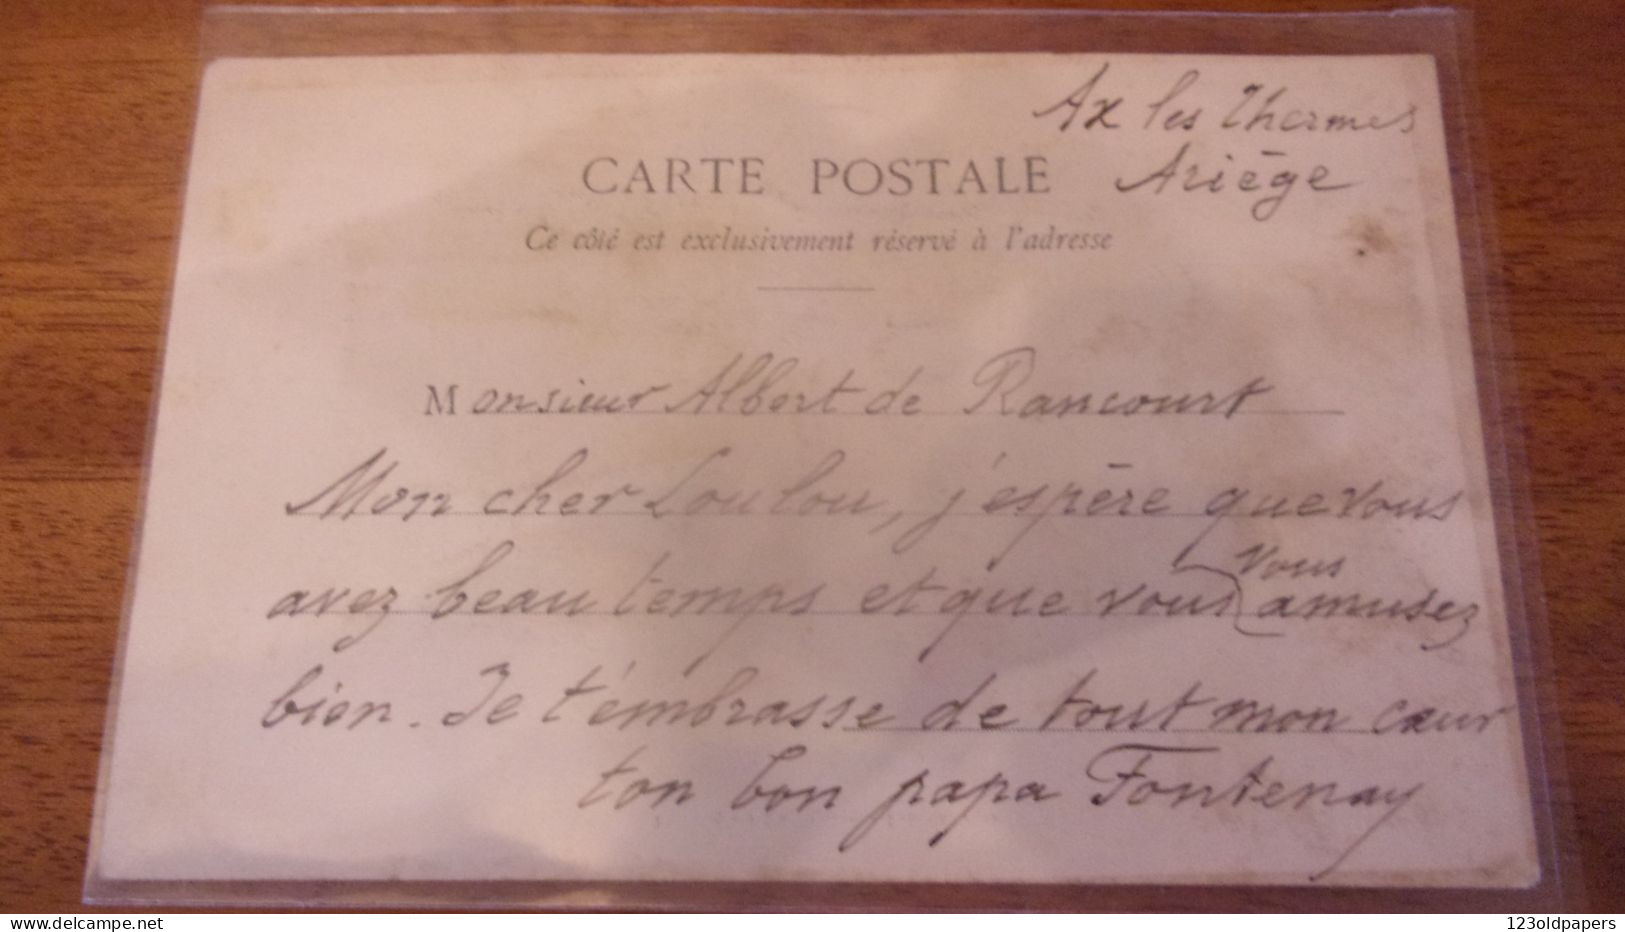 Ax les Thermes
Ariège
CARTE POSTALE
Ce côté est exclusivement réservé à l'adresse
Monsieur Albert de Rancourt
Mon cher Loulou, j'espère que vous
avez beau temps et que vous vous amusez
bien. Je t'émbrasse de tout mon cœur
ton bon papa Fontenay
delcampe.net
123oldpapers